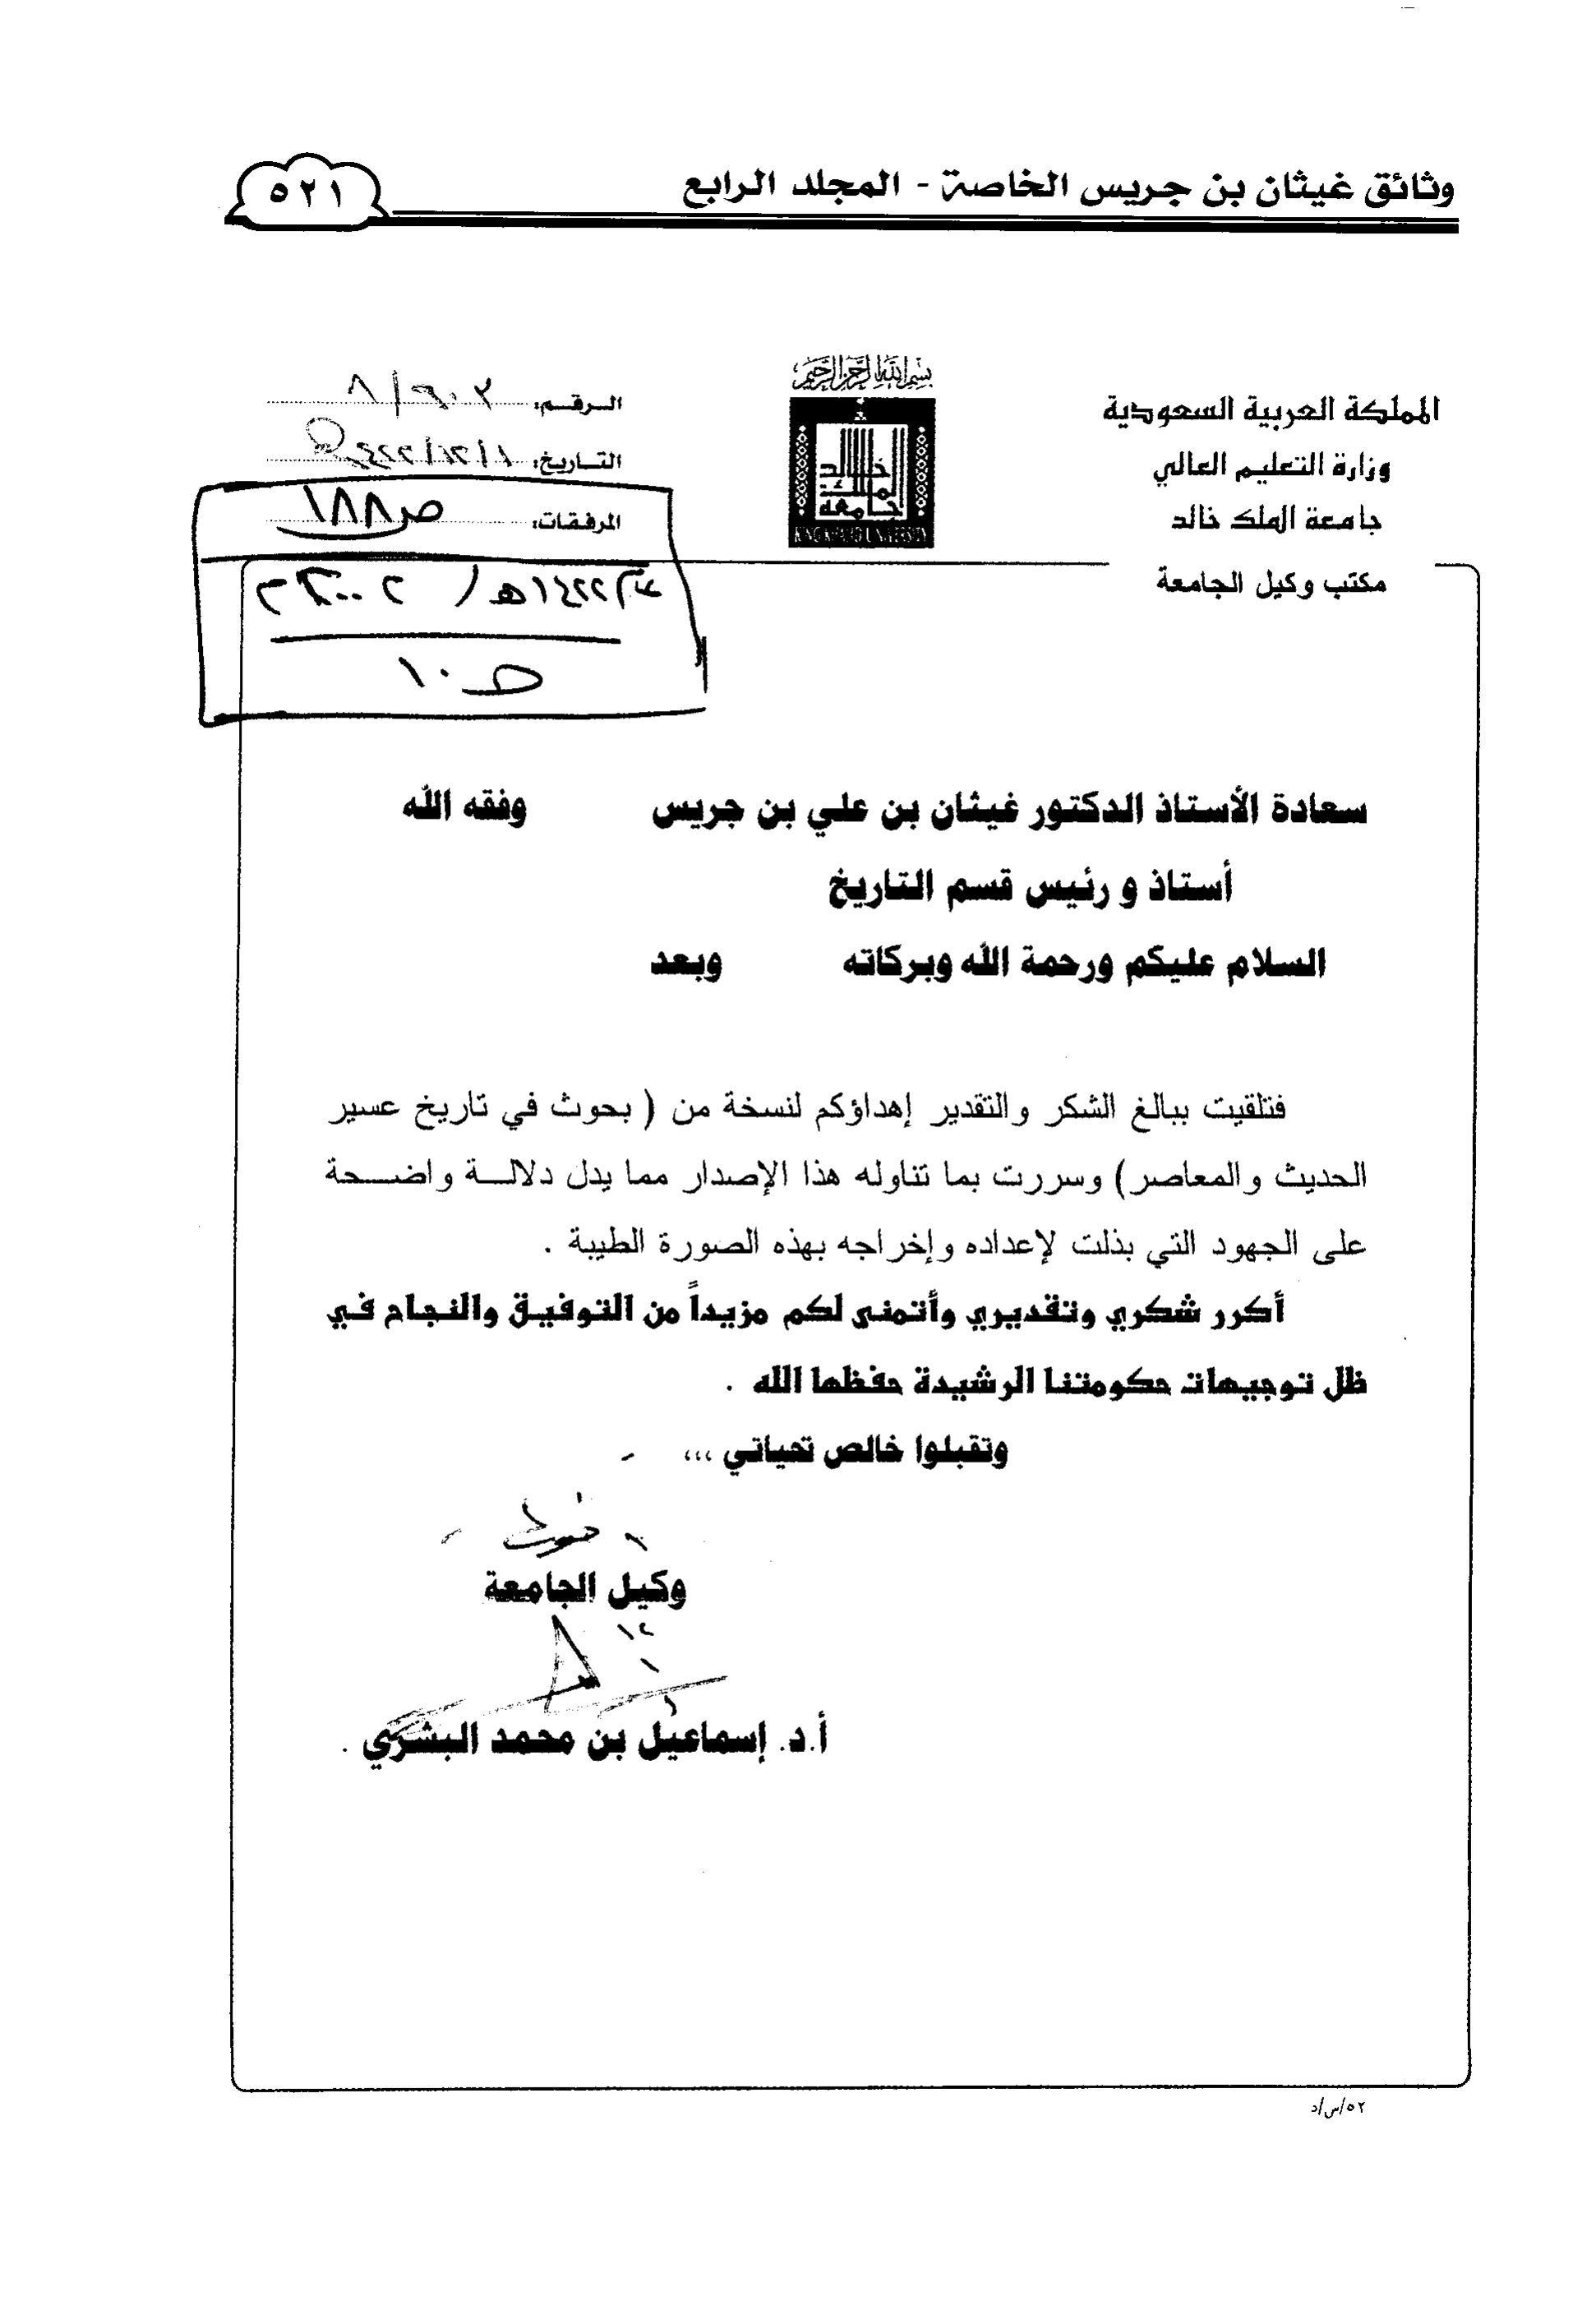 وثائق غيثان بن جريس الخاصة - المجلد الرابع
٥٢١
بسم الله الرحمن الرحيم
المملكة العربية السعودية
وزارة التعليم العالي
جامعة الملك خالد
مكتب وكيل الجامعة
جامعة الملك خالد
KING KHALID UNIVERSITY
الرقم:
التاريخ:
المرفقات: ص١٨٨
ص ١٠
سعادة الأستاذ الدكتور غيثان بن علي بن جريس وفقه الله
أستاذ و رئيس قسم التاريخ
السلام عليكم ورحمة الله وبركاته وبعد
فتلقيت ببالغ الشكر والتقدير إهداؤكم لنسخة من ( بحوث في تاريخ عسير
الحديث والمعاصر) وسررت بما تناوله هذا الإصدار مما يدل دلالة واضحة
على الجهود التي بذلت لإعداده وإخراجه بهذه الصورة الطيبة .
أكرر شكري وتقديري وأتمنى لكم مزيداً من التوفيق والنجاح في
ظل توجيهات حكومتنا الرشيدة حفظها الله .
وتقبلوا خالص تحياتي ،،،
وكيل الجامعة
أ.د. إسماعيل بن محمد البشري .
٥٢/س/د